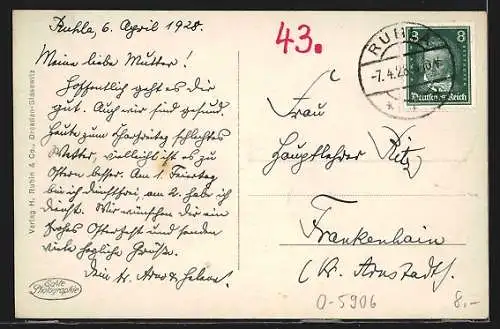 Ruhla, 6. April 1928.
Meine liebe Mutter!
Hoffentlich geht es Dir
gut. Auch wir sind gesund.
Heute zum Charfreitag schlechtes
Wetter, vielleicht ist es zu
Ostern besser. Am 1. Feiertag
bin ich dienstfrei, am 2. hab ich
Dienst. Wir wünschen Dir ein
frohes Osterfest und senden
viele herzliche Grüße.
Dein tr. Arno & Helene.
43.
RUHLA
-7.4.28
8 8
Deutsches Reich
Frau
Hauptlehrer Ritz
Frankenhain
(Kr. Arnstadt).
0-5906
8,-
Verlag H. Rubin & Co., Dresden-Blasewitz
Echte
Photographie